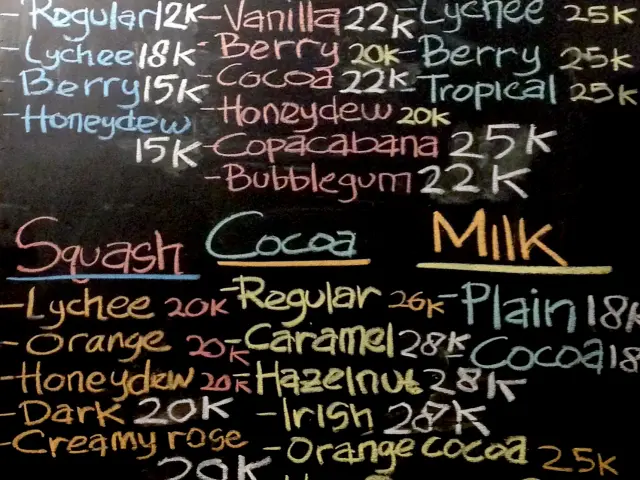 -Regular 12K
-Lychee 18K
-Berry 15K
-Honeydew
15K
-Vanilla 22K
-Berry 20K
-Cocoa 22K
-Honeydew 20K
-Copacabana 25K
-Bubblegum 22K
-Lychee 25K
-Berry 25K
-Tropical 25K
Squash
-Lychee 20K
-Orange 20K
-Honeydew 20K
-Dark 20K
-Creamy rose
20K
Cocoa
-Regular 26K
-Caramel 28K
-Hazelnut 28K
-Irish 28K
-Orange cocoa 25K
Milk
-Plain 18K
-Cocoa 18